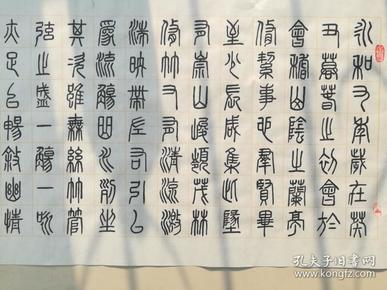 永和九年歲在癸
丑暮春之初會於
會稽山陰之蘭亭
脩禊事也羣賢畢
至少長咸集此地
有崇山峻領茂林
脩竹又有清流激
湍映帶左右引以
為流觴曲水列坐
其次雖無絲竹管
弦之盛一觴一詠
亦足以暢敘幽情
孔夫子旧书网